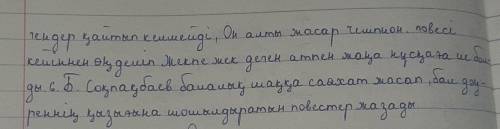 гендер қайтып келмейді, Он алты жасар чемпион. повесі
кейіннен өңделіп Жекпе жек деген атпен жаңа нұсқаға ие бол-
ды. 6. Б. Соқпақбаев балалық шаққа саяхат жасап, бал дәу-
реннің қызығына шошылдыратын повестер жазады